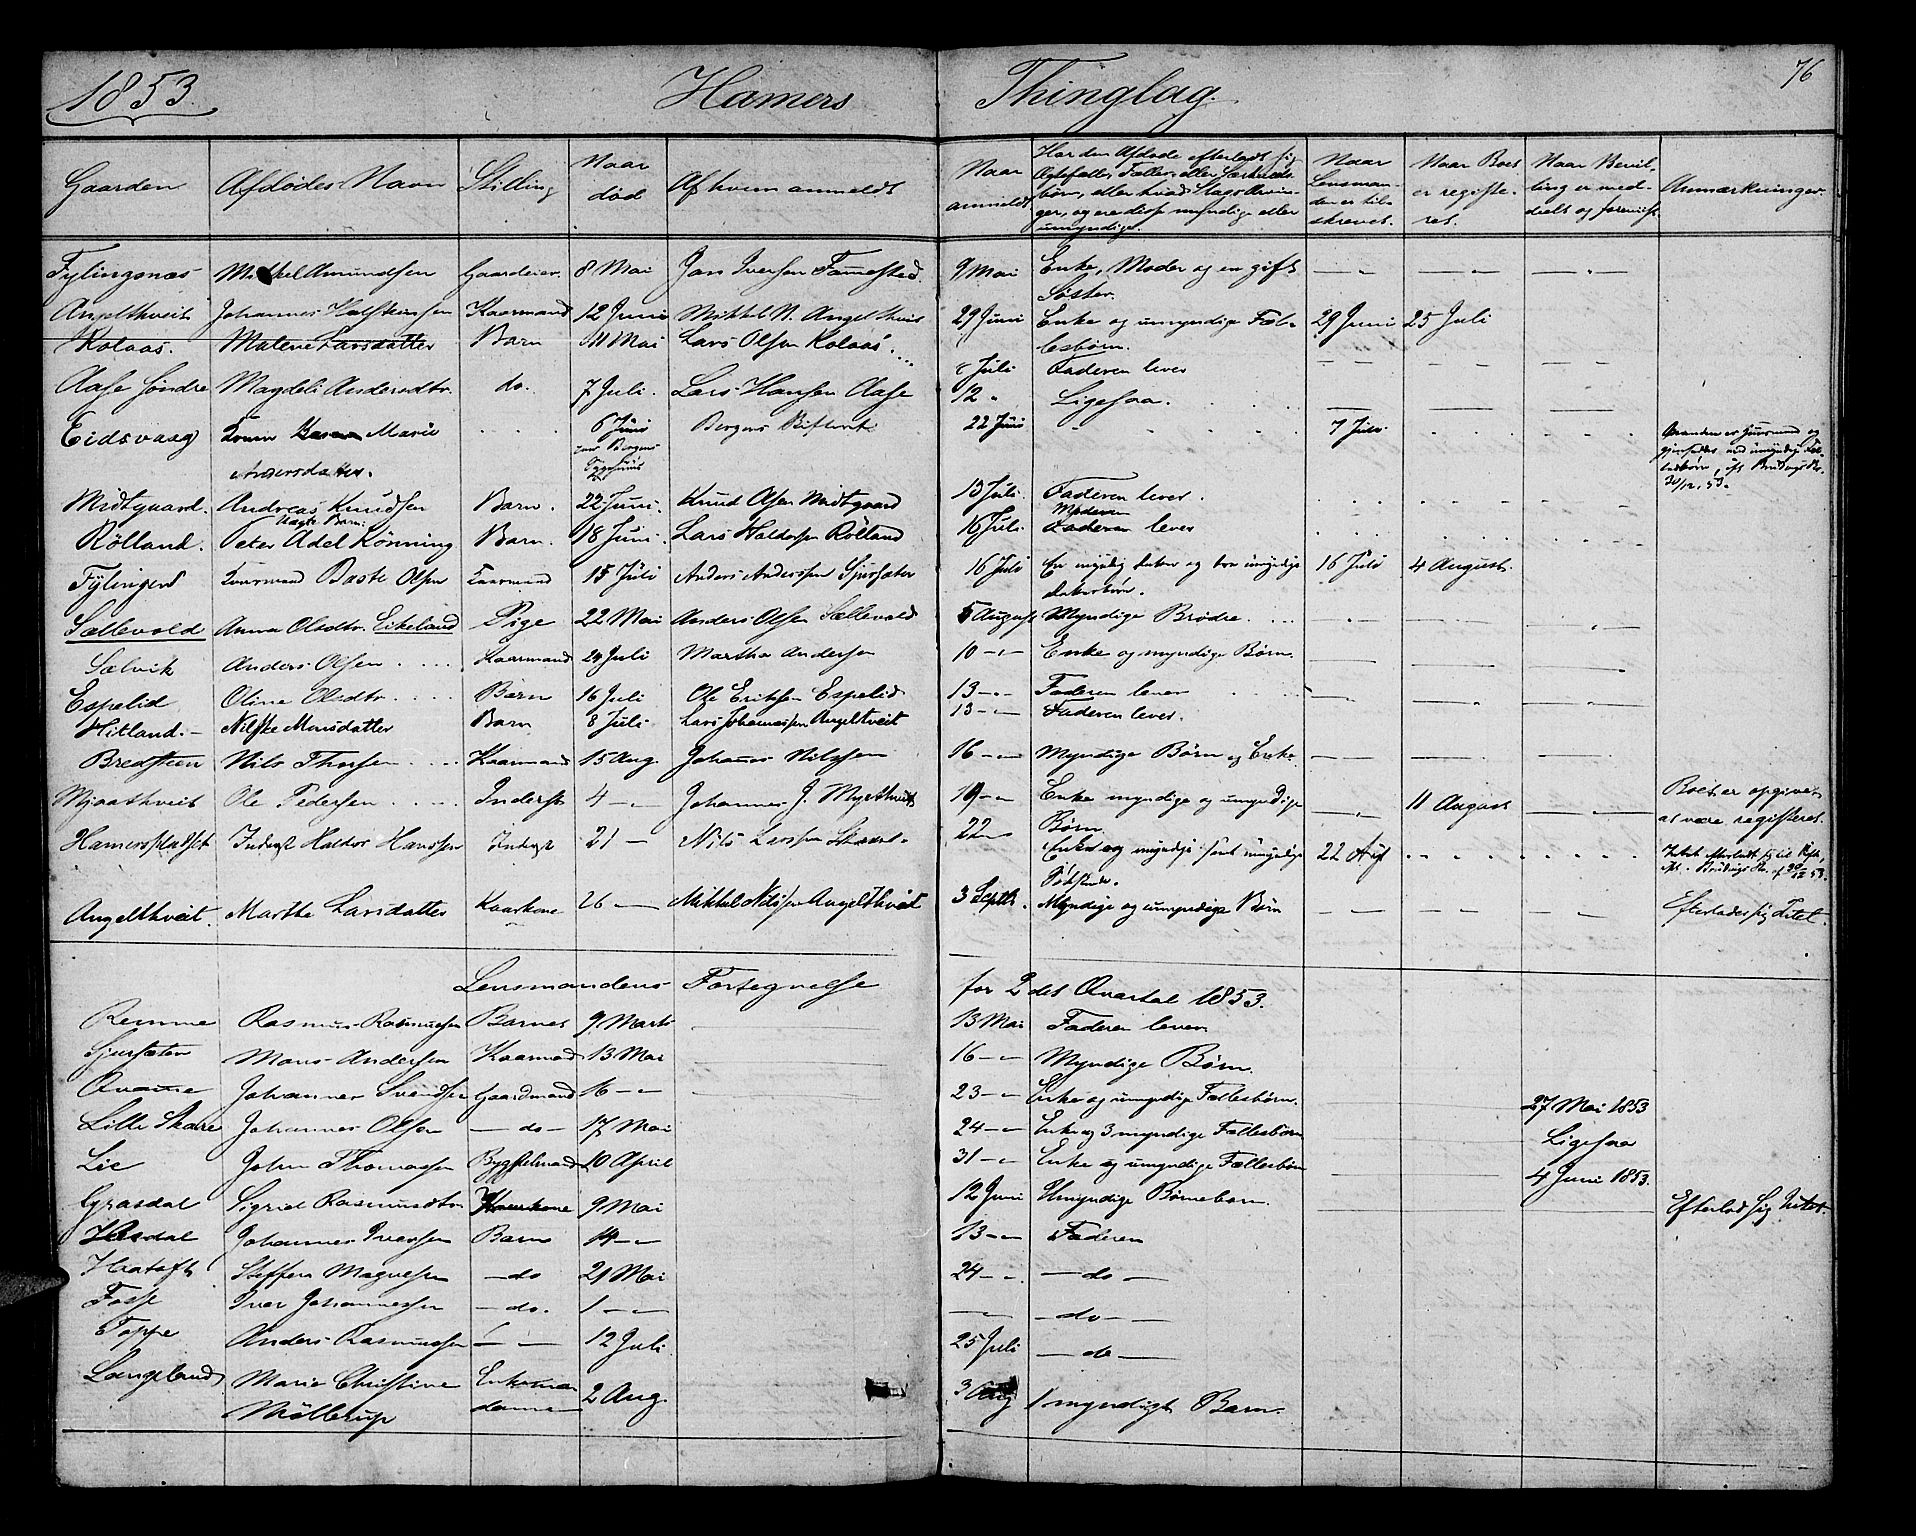 1853. Hamers Thinglag. 76
Gaarden Afdødes Navn Stilling Naar død Af hvem anmeldt Naar anmeldt Har den Afdøde efterladt sig Ægtefælle, Fælles- eller Særkuldsbørn, eller hvad Slags Arvinger, og ere disse myndige eller umyndige. Naar Lensmanden er tilskrevet. Naar Boet er registreret. Naar Bevilling er meddeelt og forevist Anmærkninger.
Fylingsnæs Mikkel Amundsen Gaardeier 8 Mai Jon Iversen Tamestad. 9 Mai Enke, Moder og en gift Søster.
Angelthveit Johannes Halsteinsen Kaarmand 12 Juni Mikkel N. Angelthveit 29 Juni Enke og umyndige Fællesbørn. 29 Juni 25 Juli
Kolaas. Malene Larsdatter Barn 11 Mai Lars Olsen Kolaas Juli Faderen lever
Aase Søndre Magdeli Andersdtr. do. 7 Juli Lars Hansen Aase 12 " Ligesaa.
Eidsvaag Marie Andersdatter. 6 Juni Bergens 22 Juni 7 Juli
Midtgaard. Andreas Knudsen Barn. 22 Juni. Knud Olsen Midtgaard 13 Juli. Faderen lever.
Rølland. Peter Adel Kønning Barn. 18 Juni. Lars Haldorsen Rølland 16 Juli Moderen Faderen lever
Fylingen Baste Olsen Kaarmand 15 Juli Anders Anderssen Sjursæter 16 Juli En myndig datter og umyndige datterbørn. 16 Juli 4 August.
Sællevold Anna Olsdtr. Eikeland Pige 22 Mai Anders Olsen Sællevold 5 August Myndige Brødre.
Sælvik Anders Olsen Kaarmand 24 Juli Martha Andersen 10 -"- Enke og myndige Børn.
Espelid Oline Olsdtr. Barn 16 Juli Ole Eriksen Espelid 13 -"- Faderen lever
Hitland. - Nilske Monsdatter Barn 8 Juli Lars Johannessen Angeltveit 13 -"- Faderen lever.
Bredsteen Nils Thorsen Kaarmand 15 Aug. Johannes Nilssen 16 -"- Myndige Børn og Enke
Mjaathveit Ole Pedersen Inderst 4 -"- Johannes J. Mjelthveit 19 -"- Enke myndige og umyndige Børn 11 August Boet er opgivet at være registeret.
Haldor Hanssen Inderst 21 - Nils Larsen 22 Enke og myndige samt umyndige 22 Aug
Angelthveit. Marthe Larsdatter Kaarkone 26 - Mikkel Nilssen Angelthveit 3 Septbr. Myndige og umyndige Børn Efterlades sig Intet.
Lensmandens Fortegnelse for 2det Qvartal 1853.
Remme Rasmus Rasmussen Barnet 9 Marts 13 Mai Faderen lever
Sjursæter Mons Andersen Kaarmand 13 Mai 16 -"- Myndige Børn.
Qvamme Johannes Svendsen Gaardmand 16 -"- 23 -"- Enke og umyndige Fællesbørn. 27 Mai 1853
Lille Skare Johannes Olsen - do - 17 Mai 24 -"- Enke og 3 myndige Fællesbørn Ligesaa
Lie John Thomassen Bygselmand 20 April 31 -"- Enke og umyndige Fællesbørn 4 Juni 1853.
Grasdal Sigrid Rasmusdtr Kaarkone 9 Mai 12 Juni Umyndige Børnebørn. Efterlod sig Intet.
Johannes Iverssen Barn 14 -"- 13 -"- Faderen
Haatoft Steffen Magnesen - do 21 Mai 24 -"- - do -
Fosse Iver Johannessen - do. 1 -"- -"- - do -
Toppe Anders Rasmussen -"- 12 Juli. 25 Juli - do -
Langeland Marie Christine Møllerup 2 Aug. 3 Aug 1 myndigt Barn.